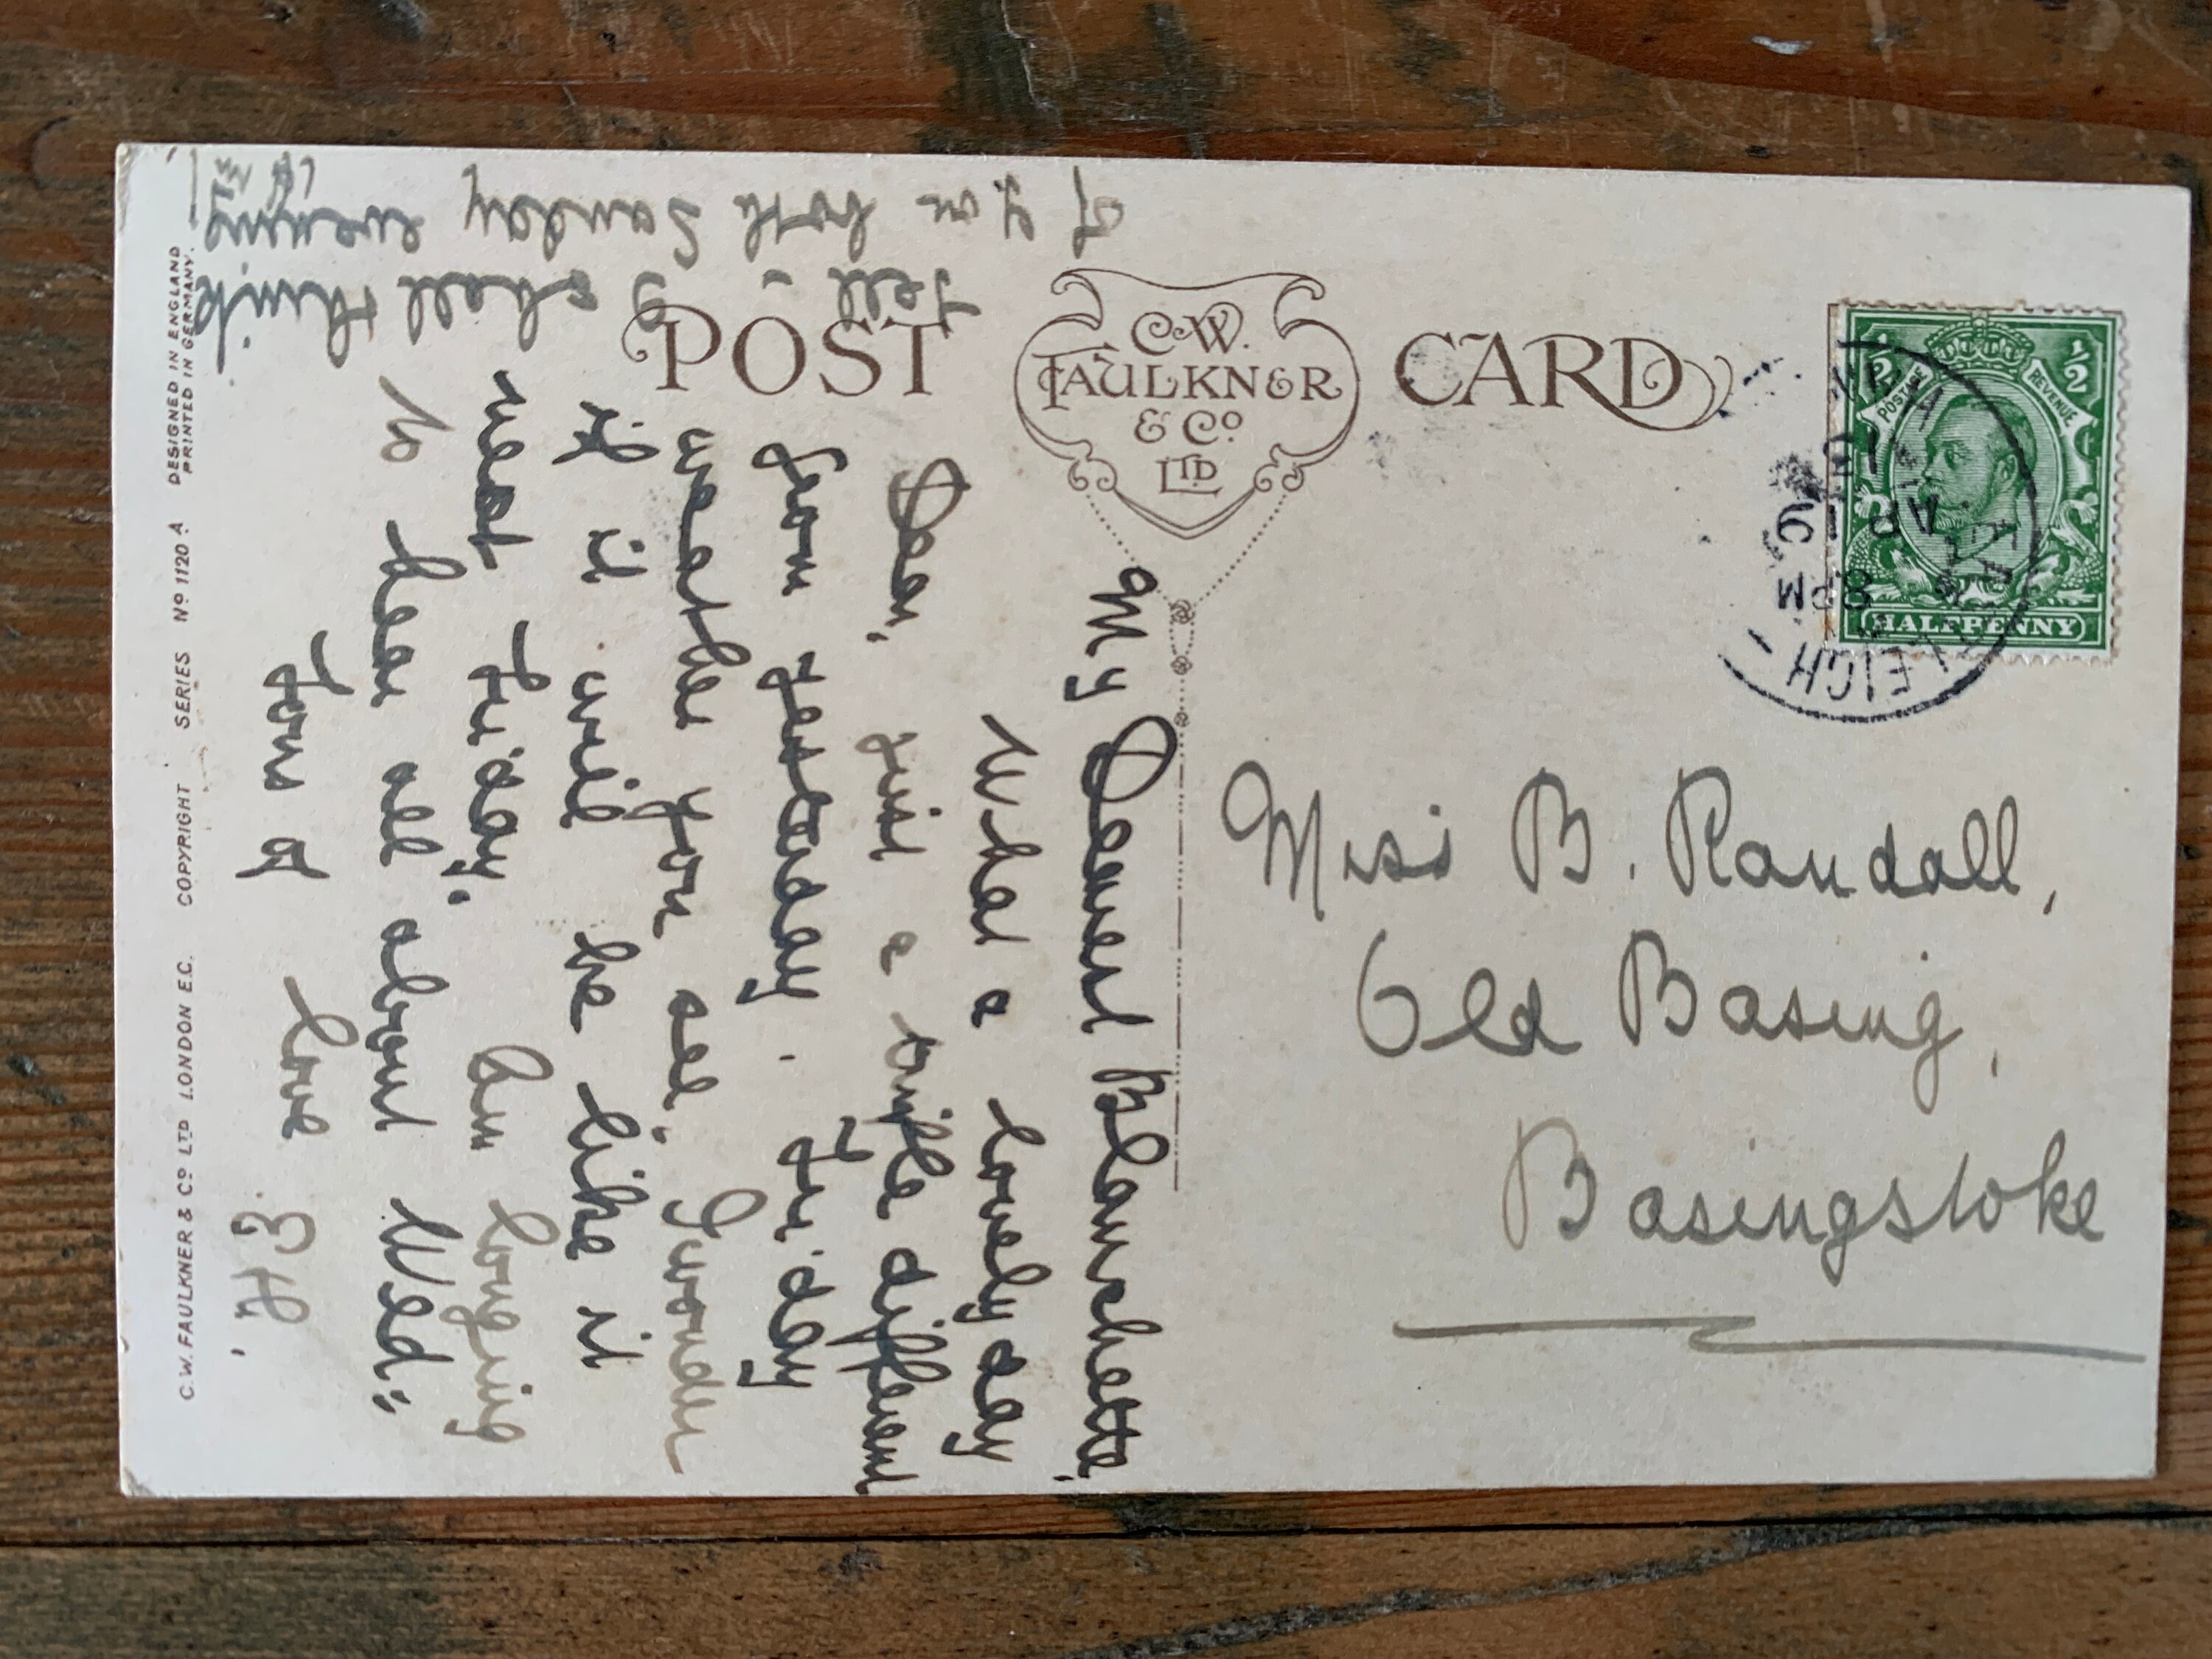 POST CARD
C.W.
FAULKNER
& Co
LTD
½ ½
POSTAGE REVENUE
HALFPENNY
LEIGH
8 PM
AP 10
13
Miss B. Randall,
Old Basing,
Basingstoke
My Dearest Blanchette,
What a lovely day
Dear, just a trifle different
from yesterday. Friday
weather you see. I wonder
if it will be like it
next Friday. Am longing
to hear all about Wed:
Tons of love E.H.
Tell, I shall think
of you both Sunday evening
C.W. FAULKNER & Co LTD LONDON E.C. COPYRIGHT SERIES No 1120 A DESIGNED IN ENGLAND
PRINTED IN GERMANY.